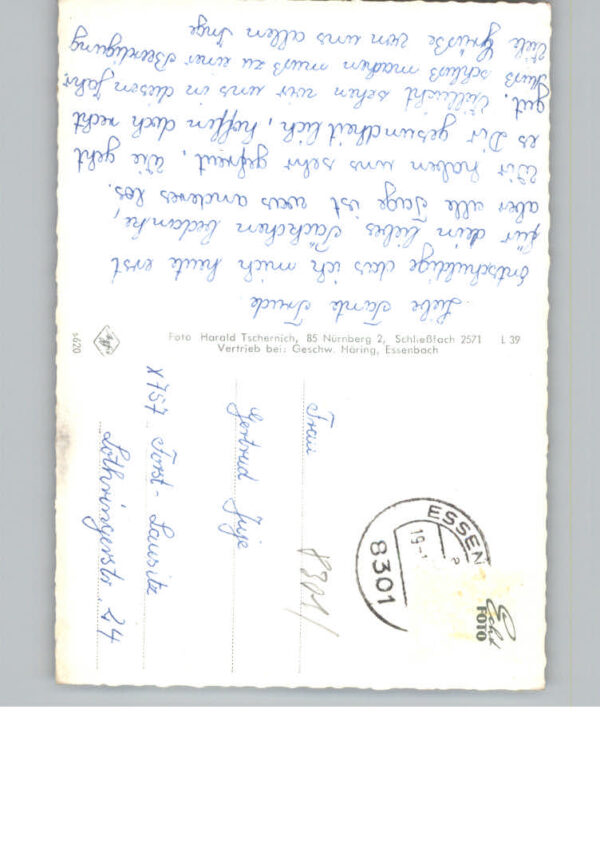 Liebe Tante Trude
Entschuldige das ich mich heute erst
für dein liebes Päckchen bedanke,
aber alle Tage ist was anderes los.
Wir haben uns sehr gefreut. Wie geht
es Dir gesundheitlich, hoffen doch recht
gut. Vielleicht sehen wir uns in diesem Jahr.
Muß schluß machen muß zu einer Beerdigung
Viele Grüße von uns allen Inge
Foto Harald Tschernich, 85 Nürnberg 2, Schließfach 2571 L 39
Vertrieb bei: Geschw. Häring, Essenbach
s620
Echt
FOTO
ESSEN
8301
19.
8301/
Frau
Gertrud
X 757 Forst-Lausitz
Lothringerstr. 24